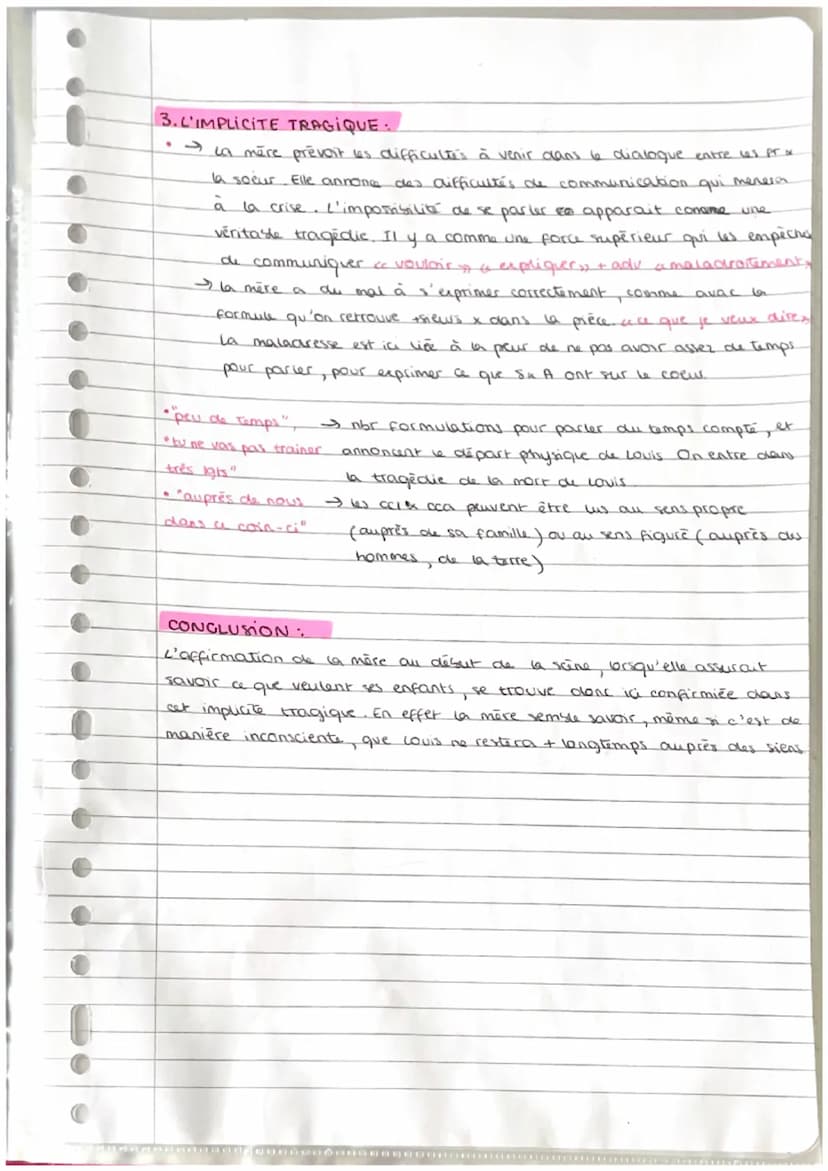 3. L'IMPLICITE TRAGIQUE :
• → La mère prévoit les difficultés à venir dans le dialogue entre les fr x
la soeur. Elle annonce des difficultés de communication qui mènera
à la crise. L'impossibilité de se parler apparait comme une
véritable tragédie. Il y a comme une force supérieur qui les empêche
de communiquer « vouloir » « expliquer » + adv « maladroitement »
→ la mère a du mal à s'exprimer correctement, comme avec la
formule qu'on retrouve +sieurs x dans la pièce. « ce que je veux dire »
La maladresse est ici liée à la peur de ne pas avoir assez de temps
pour parler, pour exprimer ce que S x A ont sur le coeur.
• "peu de temps", → nbr formulations pour parler du temps compté, et
• "tu ne vas pas trainer annoncent le départ physique de Louis. On entre dans
très " la tragédie de la mort de Louis.
• "auprès de nous → les ccl x cca peuvent être lus au sens propre
dans ce coin-ci" (auprès de sa famille) ou au sens figuré (auprès des
hommes, de la terre)
CONCLUSION :
L'affirmation de la mère au début de la scène, lorsqu'elle assurait
savoir ce que veulent ses enfants, se trouve donc ici confirmiée dans
cet implicite tragique. En effet la mère semble savoir, même si c'est de
manière inconsciente, que Louis ne restera + longtemps auprès des siens